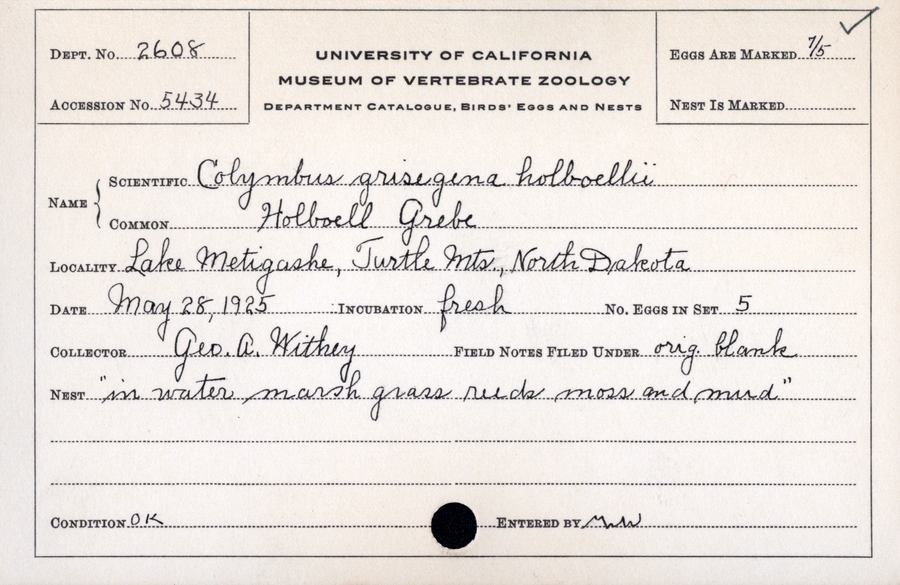 DEPT. NO. 2608
ACCESSION NO. 5434
UNIVERSITY OF CALIFORNIA
MUSEUM OF VERTEBRATE ZOOLOGY
DEPARTMENT CATALOGUE, BIRDS' EGGS AND NESTS
EGGS ARE MARKED 7/5
NEST IS MARKED
NAME
SCIENTIFIC Colymbus grisegena holboellii
COMMON Holboell Grebe
LOCALITY Lake Metigashe, Turtle Mts., North Dakota
DATE May 28, 1925 INCUBATION fresh NO. EGGS IN SET 5
COLLECTOR Geo. A. Withey FIELD NOTES FILED UNDER orig. blank
NEST "in water marsh grass reeds moss and mud"
CONDITION OK ENTERED BY